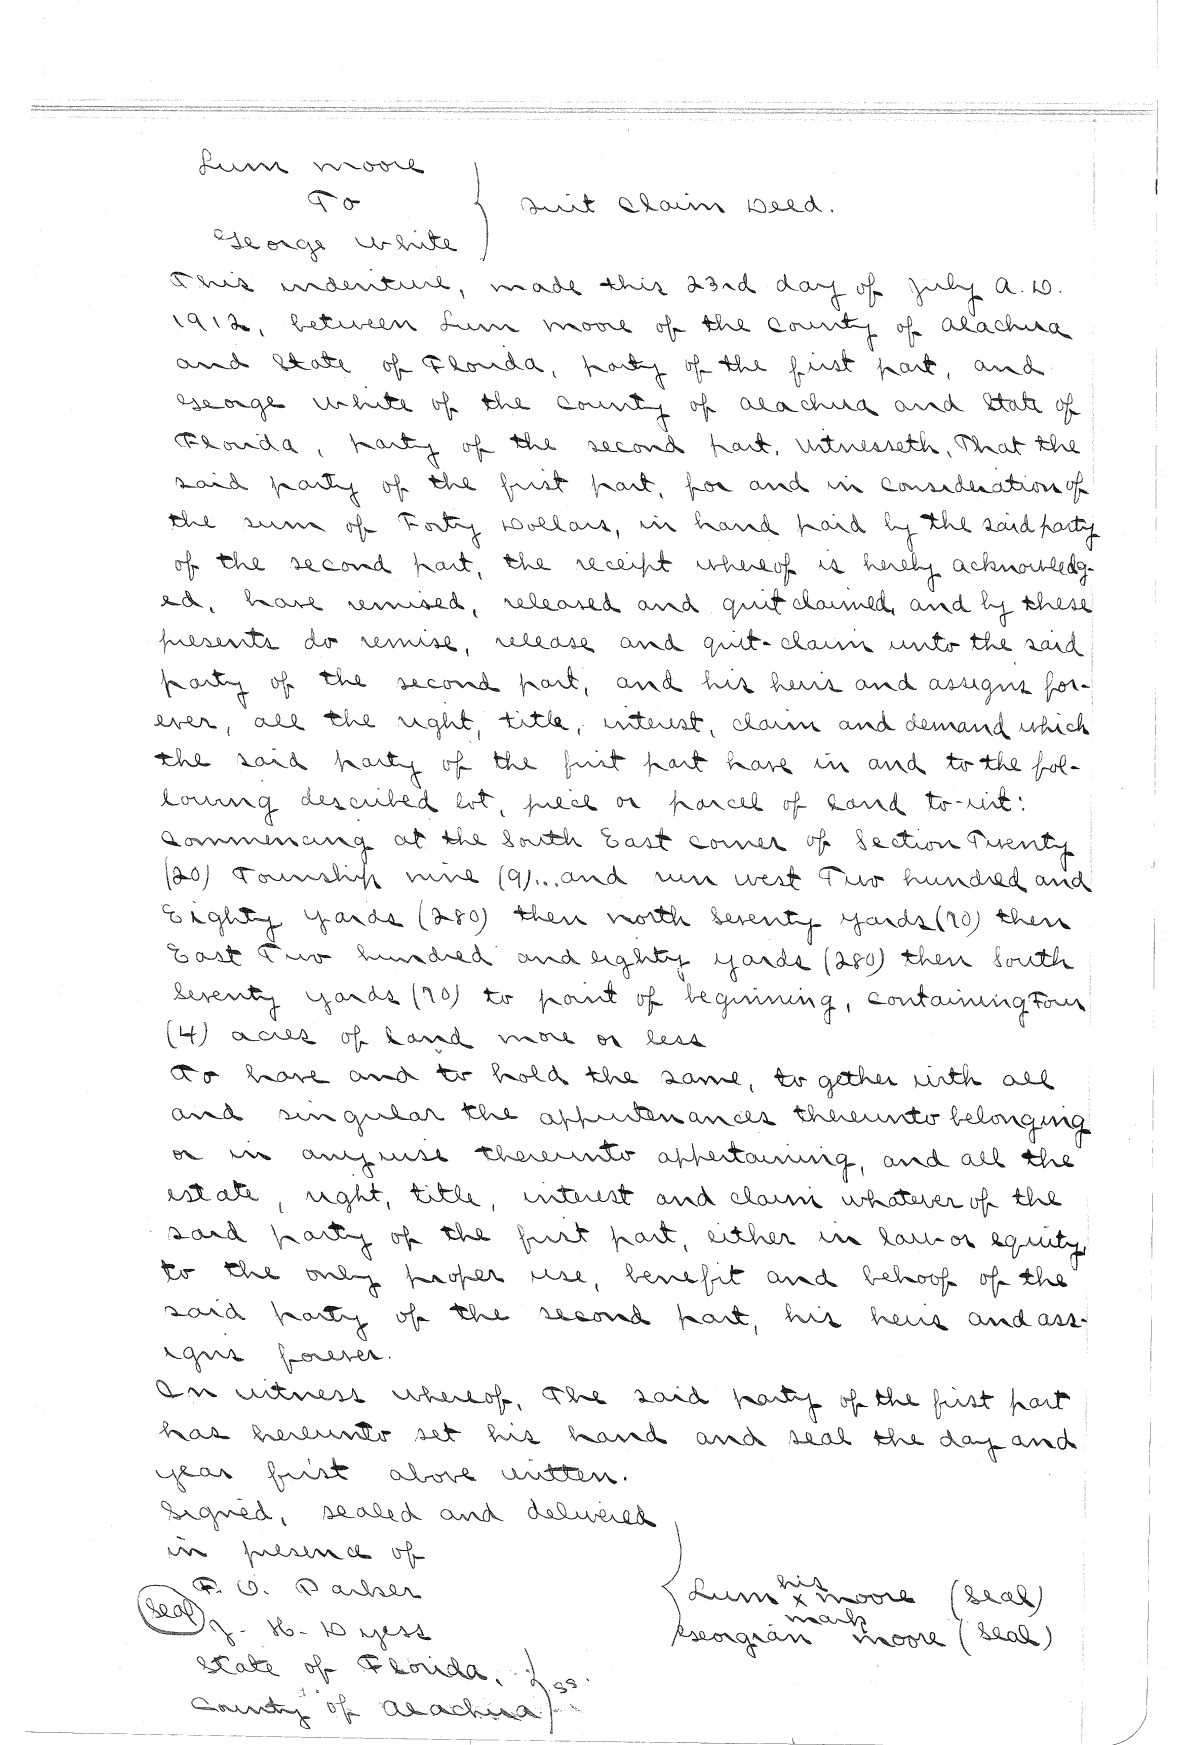 Lum Moore
To
Quit Claim Deed.
George White
This indenture, made this 23rd day of July A. D.
1912, between Lum Moore of the County of Alachua
and State of Florida, party of the first part, and
George White of the County of Alachua and State of
Florida, party of the second part, Witnesseth, That the
said party of the first part, for and in consideration of
the sum of Forty Dollars, in hand paid by the said party
of the second part, the receipt whereof is hereby acknowledg-
ed, have remised, released and quit claimed, and by these
presents do remise, release and quit-claim unto the said
party of the second part, and his heirs and assigns for-
ever, all the right, title, interest, claim and demand which
the said party of the first part have in and to the fol-
lowing described lot, piece or parcel of land to-wit:
Commencing at the South East corner of Section Twenty
(20) Township nine (9)... and run west Two hundred and
Eighty yards (280) then north Seventy yards (70) then
East Two hundred and eighty yards (280) then South
Seventy yards (70) to point of beginning, containing Four
(4) acres of land more or less
To have and to hold the same, to gether with all
and singular the appurtenances thereunto belonging
or in anywise thereunto appertaining, and all the
estate, right, title, interest and claim whatever of the
said party of the first part, either in law or equity,
to the only proper use, benefit and behoof of the
said party of the second part, his heirs and ass-
igns forever.
In witness whereof, The said party of the first part
has hereunto set his hand and seal the day and
year first above written.
Signed, sealed and delivered
in presence of
F. O. Parker
Lum his x mark Moore (Seal)
(Seal) J. H. Dyess
Georgian Moore (Seal)
State of Florida, } ss.
County of Alachua